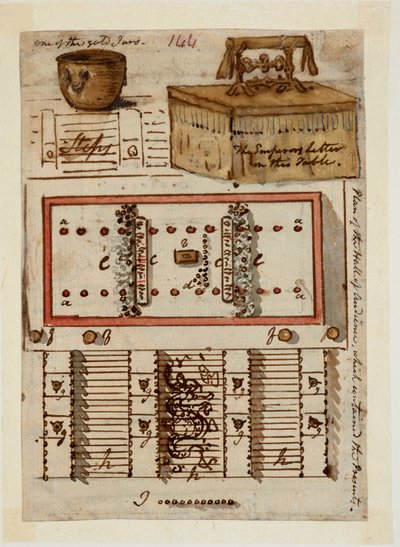 one of the gold Jars.
144
Steps
The Emperors letter
on this Table.
Plan of the Hall of Audience, which contained the Presents.
a a
b
c c c c
d
a a
f f f f
g g g g
g g g g
h h h
I